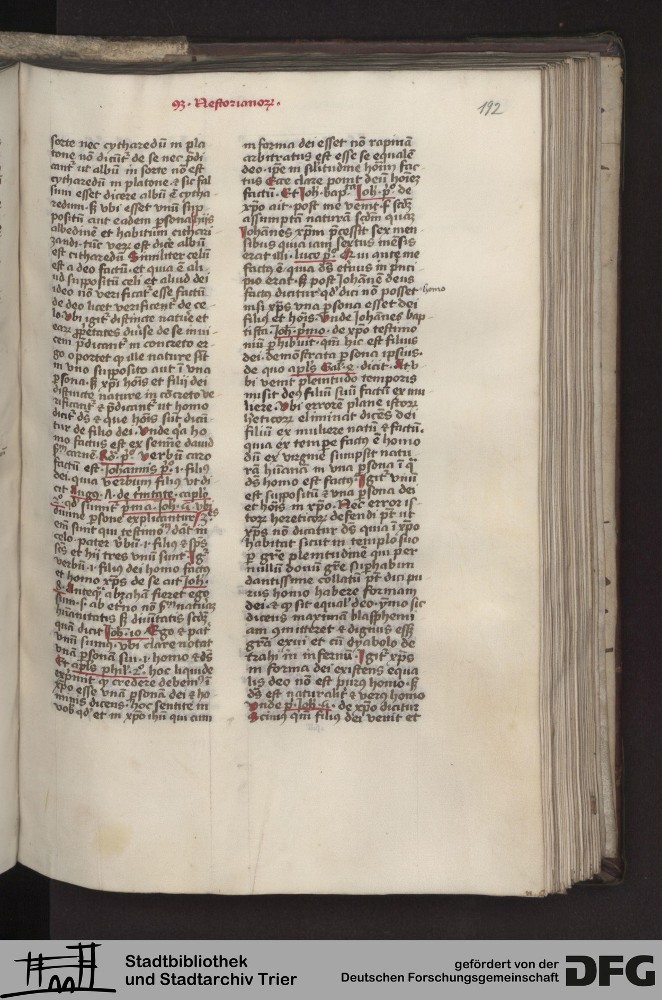 93 · Nestorianoꝝ ·
192
sorte nec cytharedū in pla
tone nō dicūt de se nec p̄di
cant ut albū in sorte nō est
cytharedū in platone & sic fal
sum esset dicere albū ē cytha
redum · ubi esset unū sup
positū aut eadem persona hn̄s
albedinem et habitum cithari
zandi · tūc uere est dicere albū
est citharedū Similiter celū
est a deo factū · et quia ē ali
ud suppositū celi et aliud dei
ideo nō uerificat esse factū
de deo licet uerificent de ce
lo · Ubi igit distincte nature et
earum proprietates diuise de se inui
cem p̄dicant in concreto er
go oportet qd ille nature sint
in uno supposito aut ī una
persona · hōis et filij dei
distincte nature in cōcreto ve
rificant & p̄dicant ut homo
dicit ds̄ & que hōis sūt dicū
tur de filio dei · Unde qa ho
mo factus est ex semine dauid
carnē Ro · p̄º Verbū caro
factū est · Johannis p̄º · i · filius
dei · quia uerbum filius ut di
cit Aug · de trinitate caplo
diuine persone explicantur
em̄ sunt qui testimoniū dāt in
celo pater v̄bū · i · filius & sps̄
sc̄s et hij tres unū sunt · Igr̄
verbū · i · filius dei homo factus
et homo xp̄s de se ait Joh ·
8 · Anteq̄ abrahā fieret ego
sum · ab et̄no nō naturā
hūanitatis diuinitatis scdꝫ
quā dicit Joh · 10 · Ego & pat̄
unū sumꝰ · ubi clare notat
unā persōnā sui · i · homo & ds̄
Et apl̄s phil · 2º · hoc liquide
exp̄mit qd credere debemꝰ ī
xp̄o esse unā persōnā dei & ho
minis dicens · hoc sentite in
vob qd et in xp̄o ihū qui cum
in forma dei esset nō rapinā
arbitratus est esse se equalē
deo · ip̄e in silitudine hoīm fac
tus Ecce clare ponit deū hoīeꝫ
factū · Et Joh · bap̄ · Joh · p̄º · de
xp̄o ait · post me venit · scdꝫ
assumptā naturā scdm quaꝫ
Johānes xp̄m p̄cessit sex men
sibus quia iam sextus mēsis
erat illi · luce p̄º · Qui ante me
factꝰ ē quia ds̄ et̄nus in p̄nci
pio erat · post Johānē deus
factꝰ dicitur qd dici nō posset homo
nisi xp̄s una persona esset dei
filius et hōis · Unde Johānes bap
tista · Joh · p̄mo · de xp̄o testimo
niū p̄hibuit · qm̄ hic est filius
dei · demōstrata persona ipsius ·
de quo apl̄s Gal · 4 · dicit · At u
bi venit plenitudo temporis
misit deꝰ filiū suū factū ex mu
liere · Ubi errorē plane istoꝝ
hereticoꝝ eliminat dicēs dei
filiū ex muliere natū & factū ·
quia ex tempe factꝰ ē homo
dū ex virgine sumpsit natu
rā hūanā in una persona ī q̄
ds̄ homo est factꝰ Igit unū
est suppositū & una persona dei
et hōis in xp̄o · Nec error is
toꝝ hereticoꝝ defendi pt̄ ut
xp̄s nō dicatur ds̄ quia ī xp̄o
habitat sicut in templo suo
p gr̄e plenitudinē qui per
nullū donū gr̄e suphabun
dantissime collatū pt̄ dici pu
rus homo habere formam
dei · & qd sit equal deo · ymo sic
dicens maximā blasphemi
am committeret & dignus esset
gr̄a exui et cū dyabolo de
trahi in infernū · Igit xp̄s
in forma dei existens equa
lis deo nō est purꝰ homo ·
ds̄ est naturalit̄ & verꝰ homo
Unde p̄ · Joh · 4 · de xp̄o dicitur
Scimꝰ qm̄ filius dei venit et
Stadtbibliothek
und Stadtarchiv Trier
gefördert von der
Deutschen Forschungsgemeinschaft
DFG